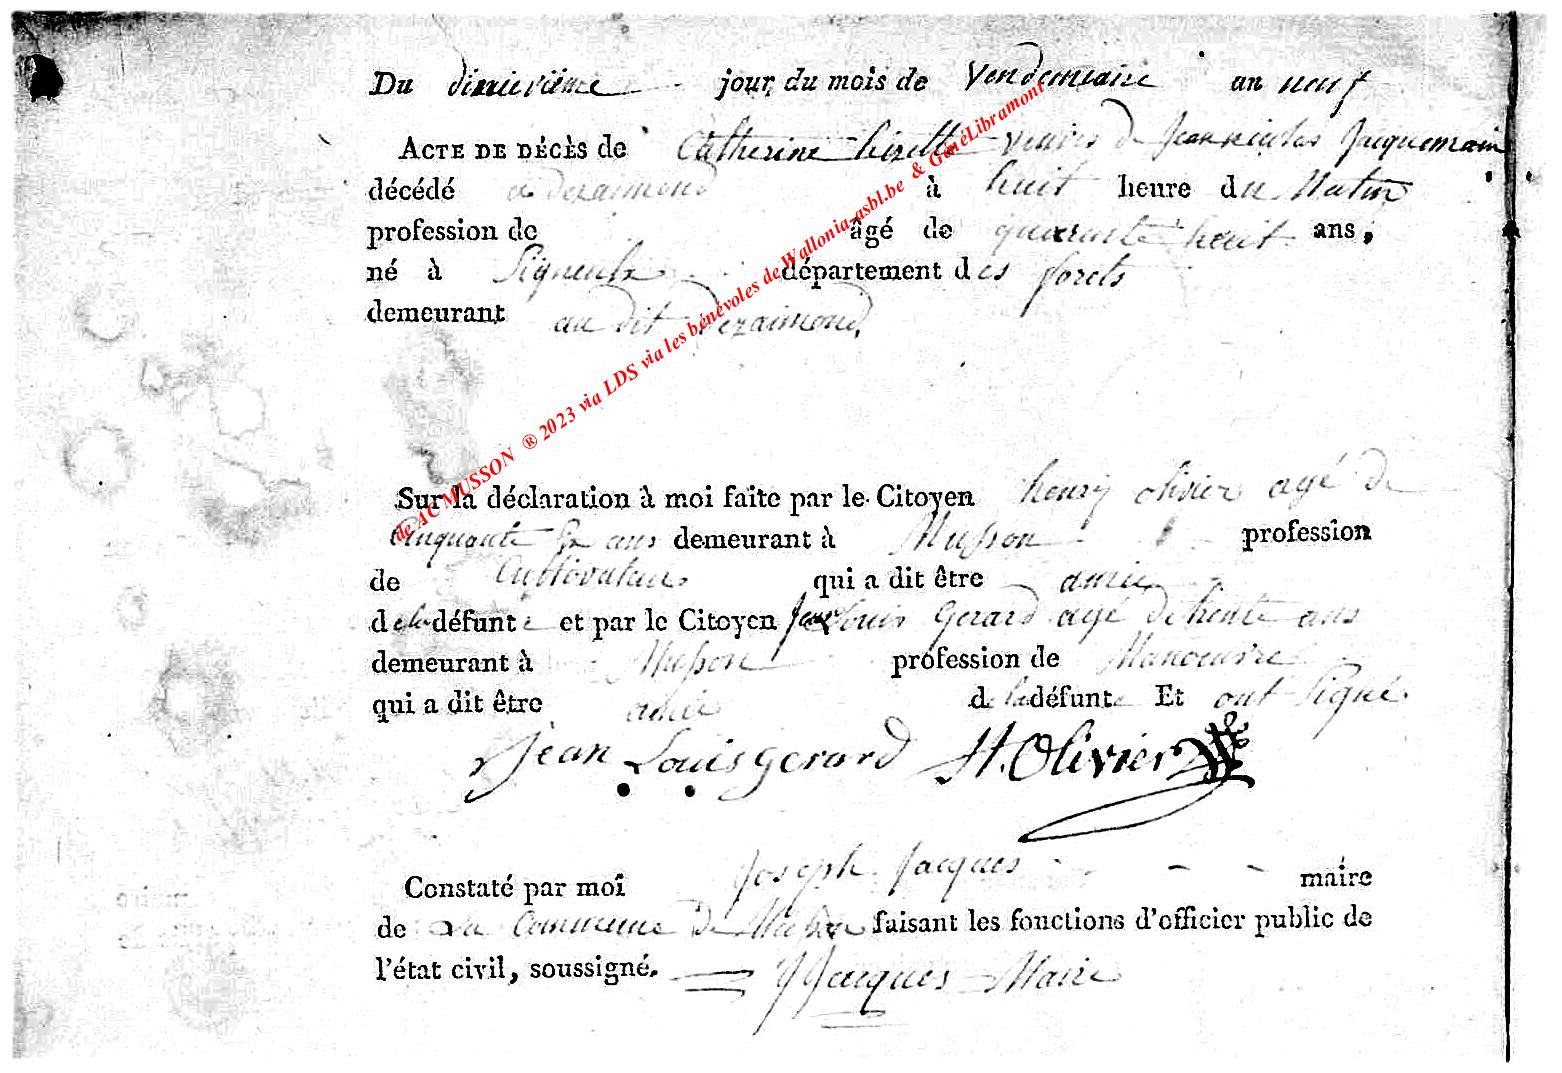 Du dixnevième jour du mois de Vendemiaire an neuf
ACTE DE DÉCÈS de Catherine veuve de Jean nicolas Jacquemain
décédé a dezaimond à huit heure du Matin
profession de âgé de quarante huit ans,
né à Signeulx département des forets
demeurant au dit Dezaimond,
Sur la déclaration à moi faite par le Citoyen henry olivier agé de
Cinquante ans demeurant à Musson profession
de Cultivateur qui a dit être amie
de la défunte et par le Citoyen Jean louis Gerard agé de trente ans
demeurant à Musson profession de Manoeuvre
qui a dit être amie de la défunte Et ont signé
Jean Louis gerard H. Olivier
Constaté par moi Joseph Jacques - - - maire
de la Commune de Musson faisant les fonctions d'officier public de
l'état civil, soussigné. JJacques Maire
de AC MUSSON ® 2023 via LDS via les bénévoles de Wallonia-asbl.be & GénéLibramont